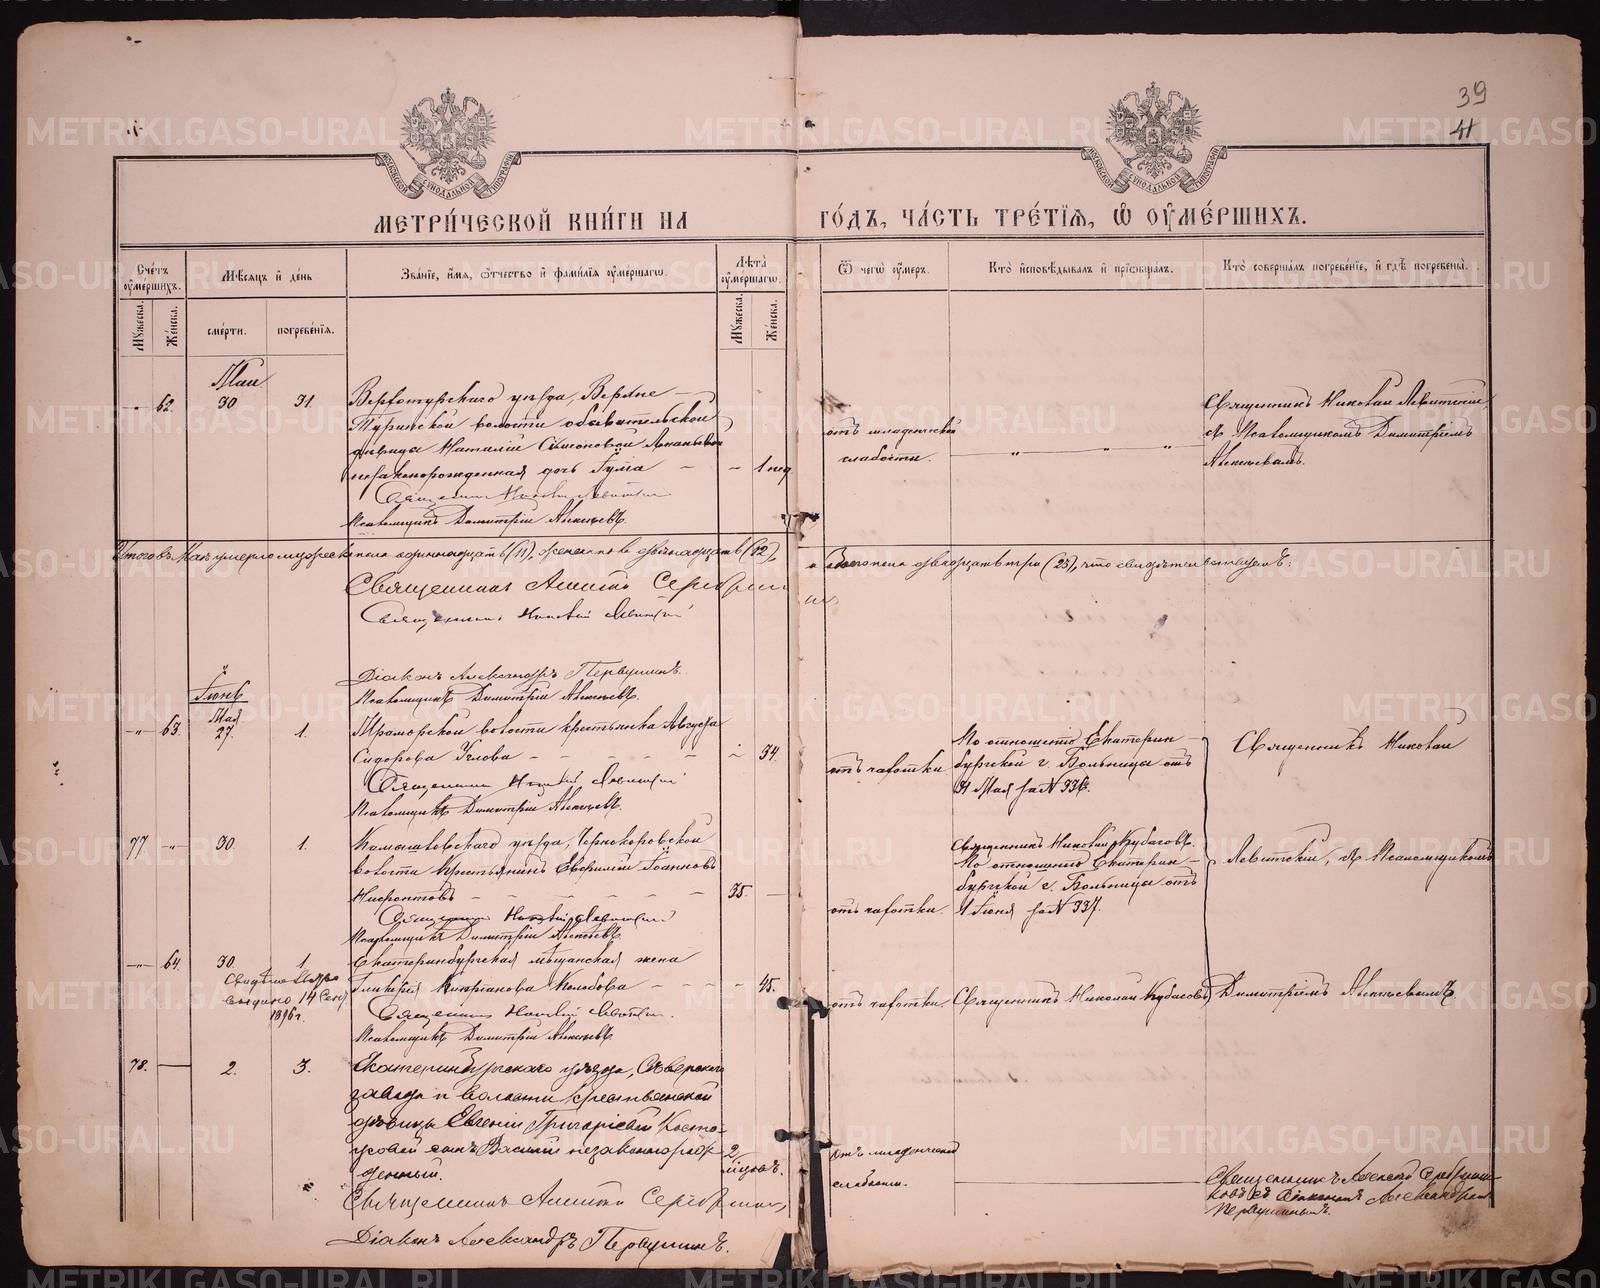 39
41
МОСКОВСКОЙ СѴНОДАЛЬНОЙ ТИПОГРАФІИ
МОСКОВСКОЙ СѴНОДАЛЬНОЙ ТИПОГРАФІИ
МЕТРИ́ЧЕСКОЙ КНИ́ГИ НА ГО́ДЪ, ЧА́СТЬ ТРЕ́ТІѦ, Ѡ҆ ОУ҆МЕ́РШИХЪ.
Сче́тъ оу҆ме́ршихъ.
Мꙋ́жеска.
Же́нска.
Мѣ́сѧцъ и҆ де́нь
сме́рти.
погребе́нїѧ.
Зва́нїе, и҆́мѧ, ѻ҆́тчество и҆ фами́лїѧ оу҆ме́ршагѡ.
Лѣ́та оу҆ме́ршагѡ.
Мꙋ́жеска.
Же́нска.
Ѿ чегѡ̀ оу҆́меръ.
Кто̀ и҆сповѣ́дывалъ и҆ прїѡбща́лъ.
Кто̀ соверша́лъ погребе́нїе, и҆ гдѣ̀ погребены̀.
Маи
62. 30 31.
Верхотурскаго уѣзда, Верхне-
Туринской волости обывательской
дѣвицы Наталіи Симоновой Ананьевой
незаконнорожденная дочь Гулія
1 нед
Священникъ Николай Левитскій
Псаломщикъ Димитрій Алексѣевъ.
отъ младенческой
слабости.
Священникъ Николай Левитскій,
съ Псаломщикомъ Димитріемъ
Алексѣевымъ.
Итого въ Маѣ умерло мужеска пола одиннадцать (11), женска пола двѣнадцать (12), а
Всего пола двадцать три (23), что свидѣтельствуемъ:
Священникъ
Священникъ Николай Левитскій
Діаконъ Александръ Первушинъ.
Псаломщикъ Димитрій Алексѣевъ.
Іюнь
Мая
63. 27. 1.
Мраморской волости крестьянка Августа
Сидорова Углова
34.
Священникъ Николай Левитскій
Псаломщикъ Димитрій Алексѣевъ.
отъ чахотки
По отношенію Екатерин-
бургской г. Больницы отъ
31 Мая за № 336.
Священникъ Николай
77 30. 1.
Камышловскаго уѣзда, Чернокоровской
волости крестьянинъ Іоанновъ
35.
Священникъ Николай Левитскій
Псаломщикъ Димитрій Алексѣевъ.
отъ чахотки.
Священникъ Николай Кубасовъ.
По отношенію Екатерин-
бургской г. Больницы отъ
1 Іюня за № 337.
Левитскій, съ Псаломщикомъ
64. 30. 1.
выдано 14 Сен
1896 г.
Екатеринбургская мѣщанская жена
Гликерія Кипріанова Колобова
45.
Священникъ Николай Левитскій.
Псаломщикъ Димитрій Алексѣевъ.
отъ чахотки.
Священникъ Николай Кубасовъ
Димитріемъ Алексѣевымъ.
78. 2. 3.
Екатеринбургскаго уѣзда, Сѣверскаго
завода и волости крестьянской
дѣвицы Евгеніи Григорьевой Косто-
усовой сынъ Василій незаконнорож-
денный.
2
мѣсяц.
Священникъ
Діаконъ Александръ Первушинъ.
отъ младенческой
слабости.
Священникъ
съ Діакономъ Александромъ
Первушинымъ.
METRIKI.GASO-URAL.RU